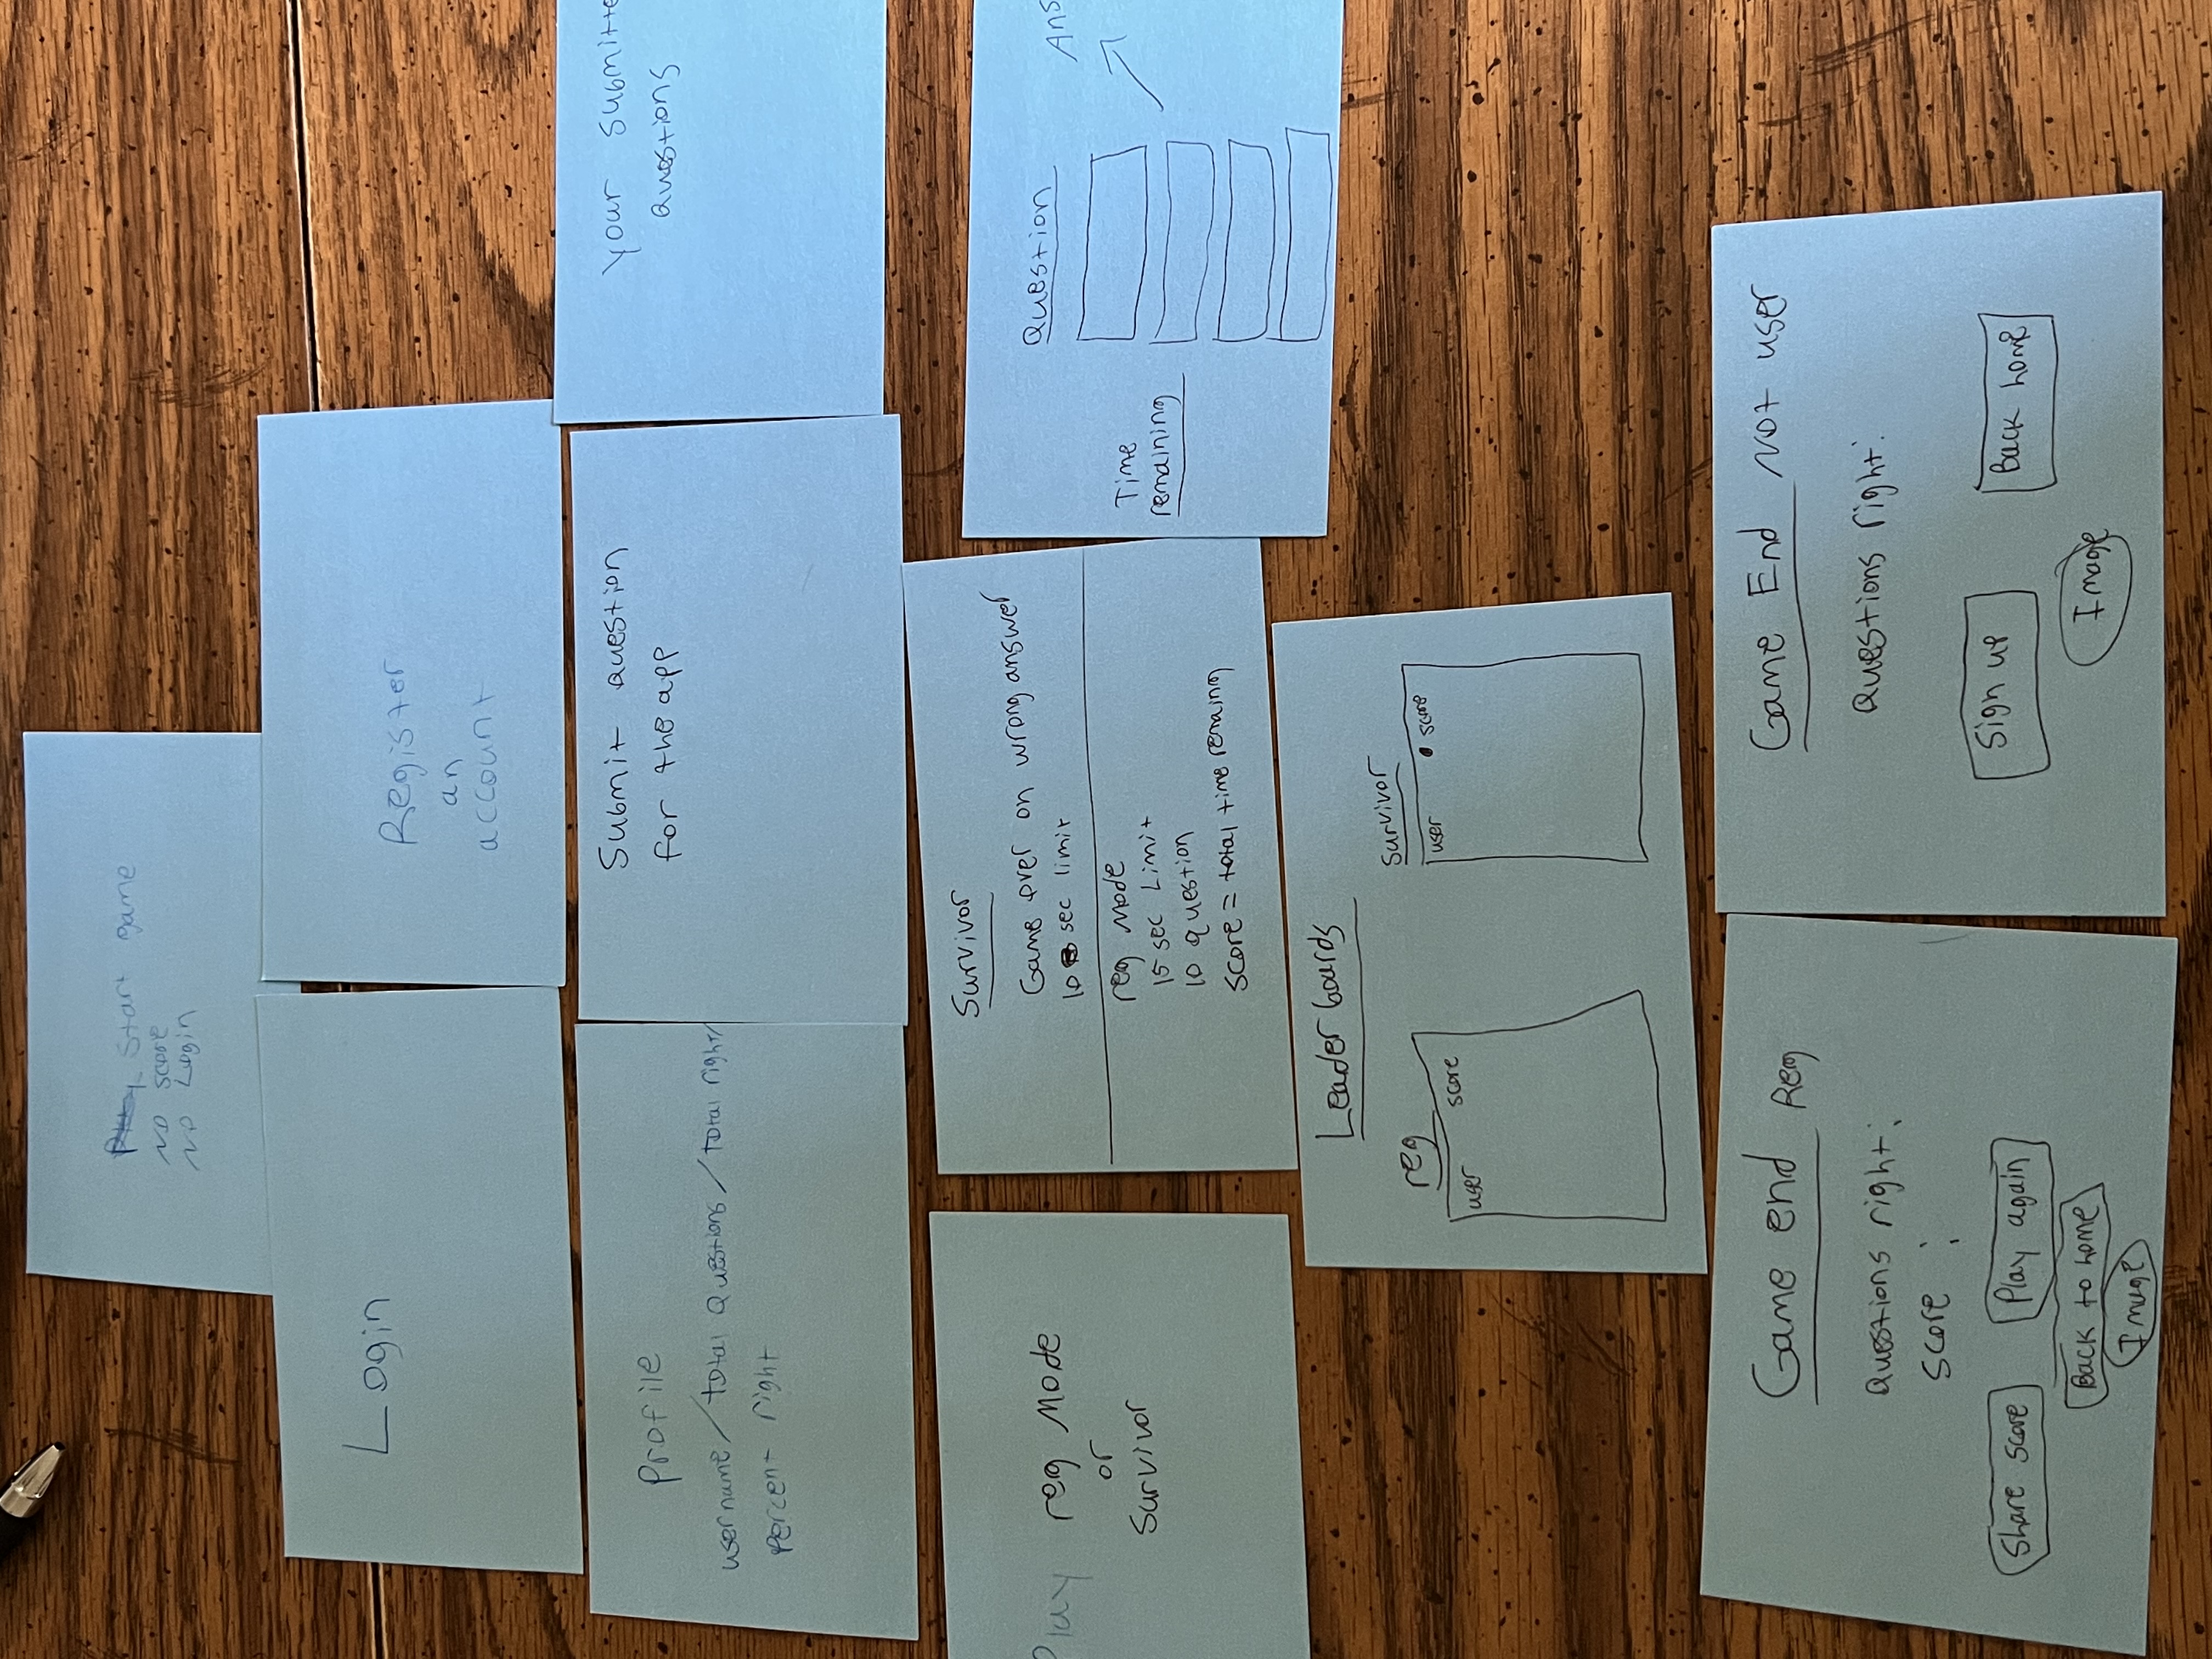 Start game
NO score
NO Login
Login
Register
an
account
Profile
username / total Questions / total right/
Percent right
Submit question
for the app
your submitte
questions
Play reg Mode
or
Survivor
Survivor
Game over on wrong answer
10 sec limit
reg mode
15 sec Limit
10 question
score = total time remaining
Question
Ans
Time
remaining
Leader boards
reg
user score
Survivor
user score
Game end Reg
Questions right:
Score :
Share score
Play again
Back to home
Image
Game End Not user
Questions right:
Sign up
Back home
Image